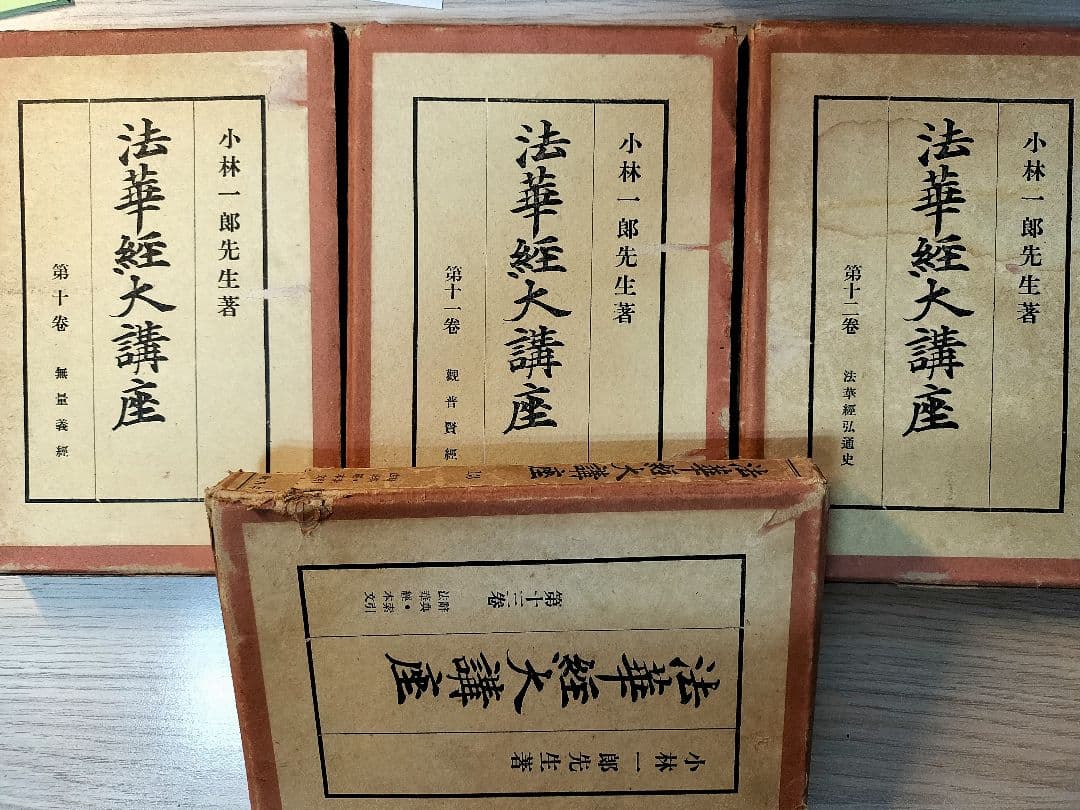 小林一郎先生著
法華經大講座
第十卷 無量義經
小林一郎先生著
法華經大講座
第十一卷 觀普賢經
小林一郎先生著
法華經大講座
第十二卷 法華經弘通史
法華經大講座
小林一郎先生著
法華經大講座
第十三卷
辭典・索引
法華經本文